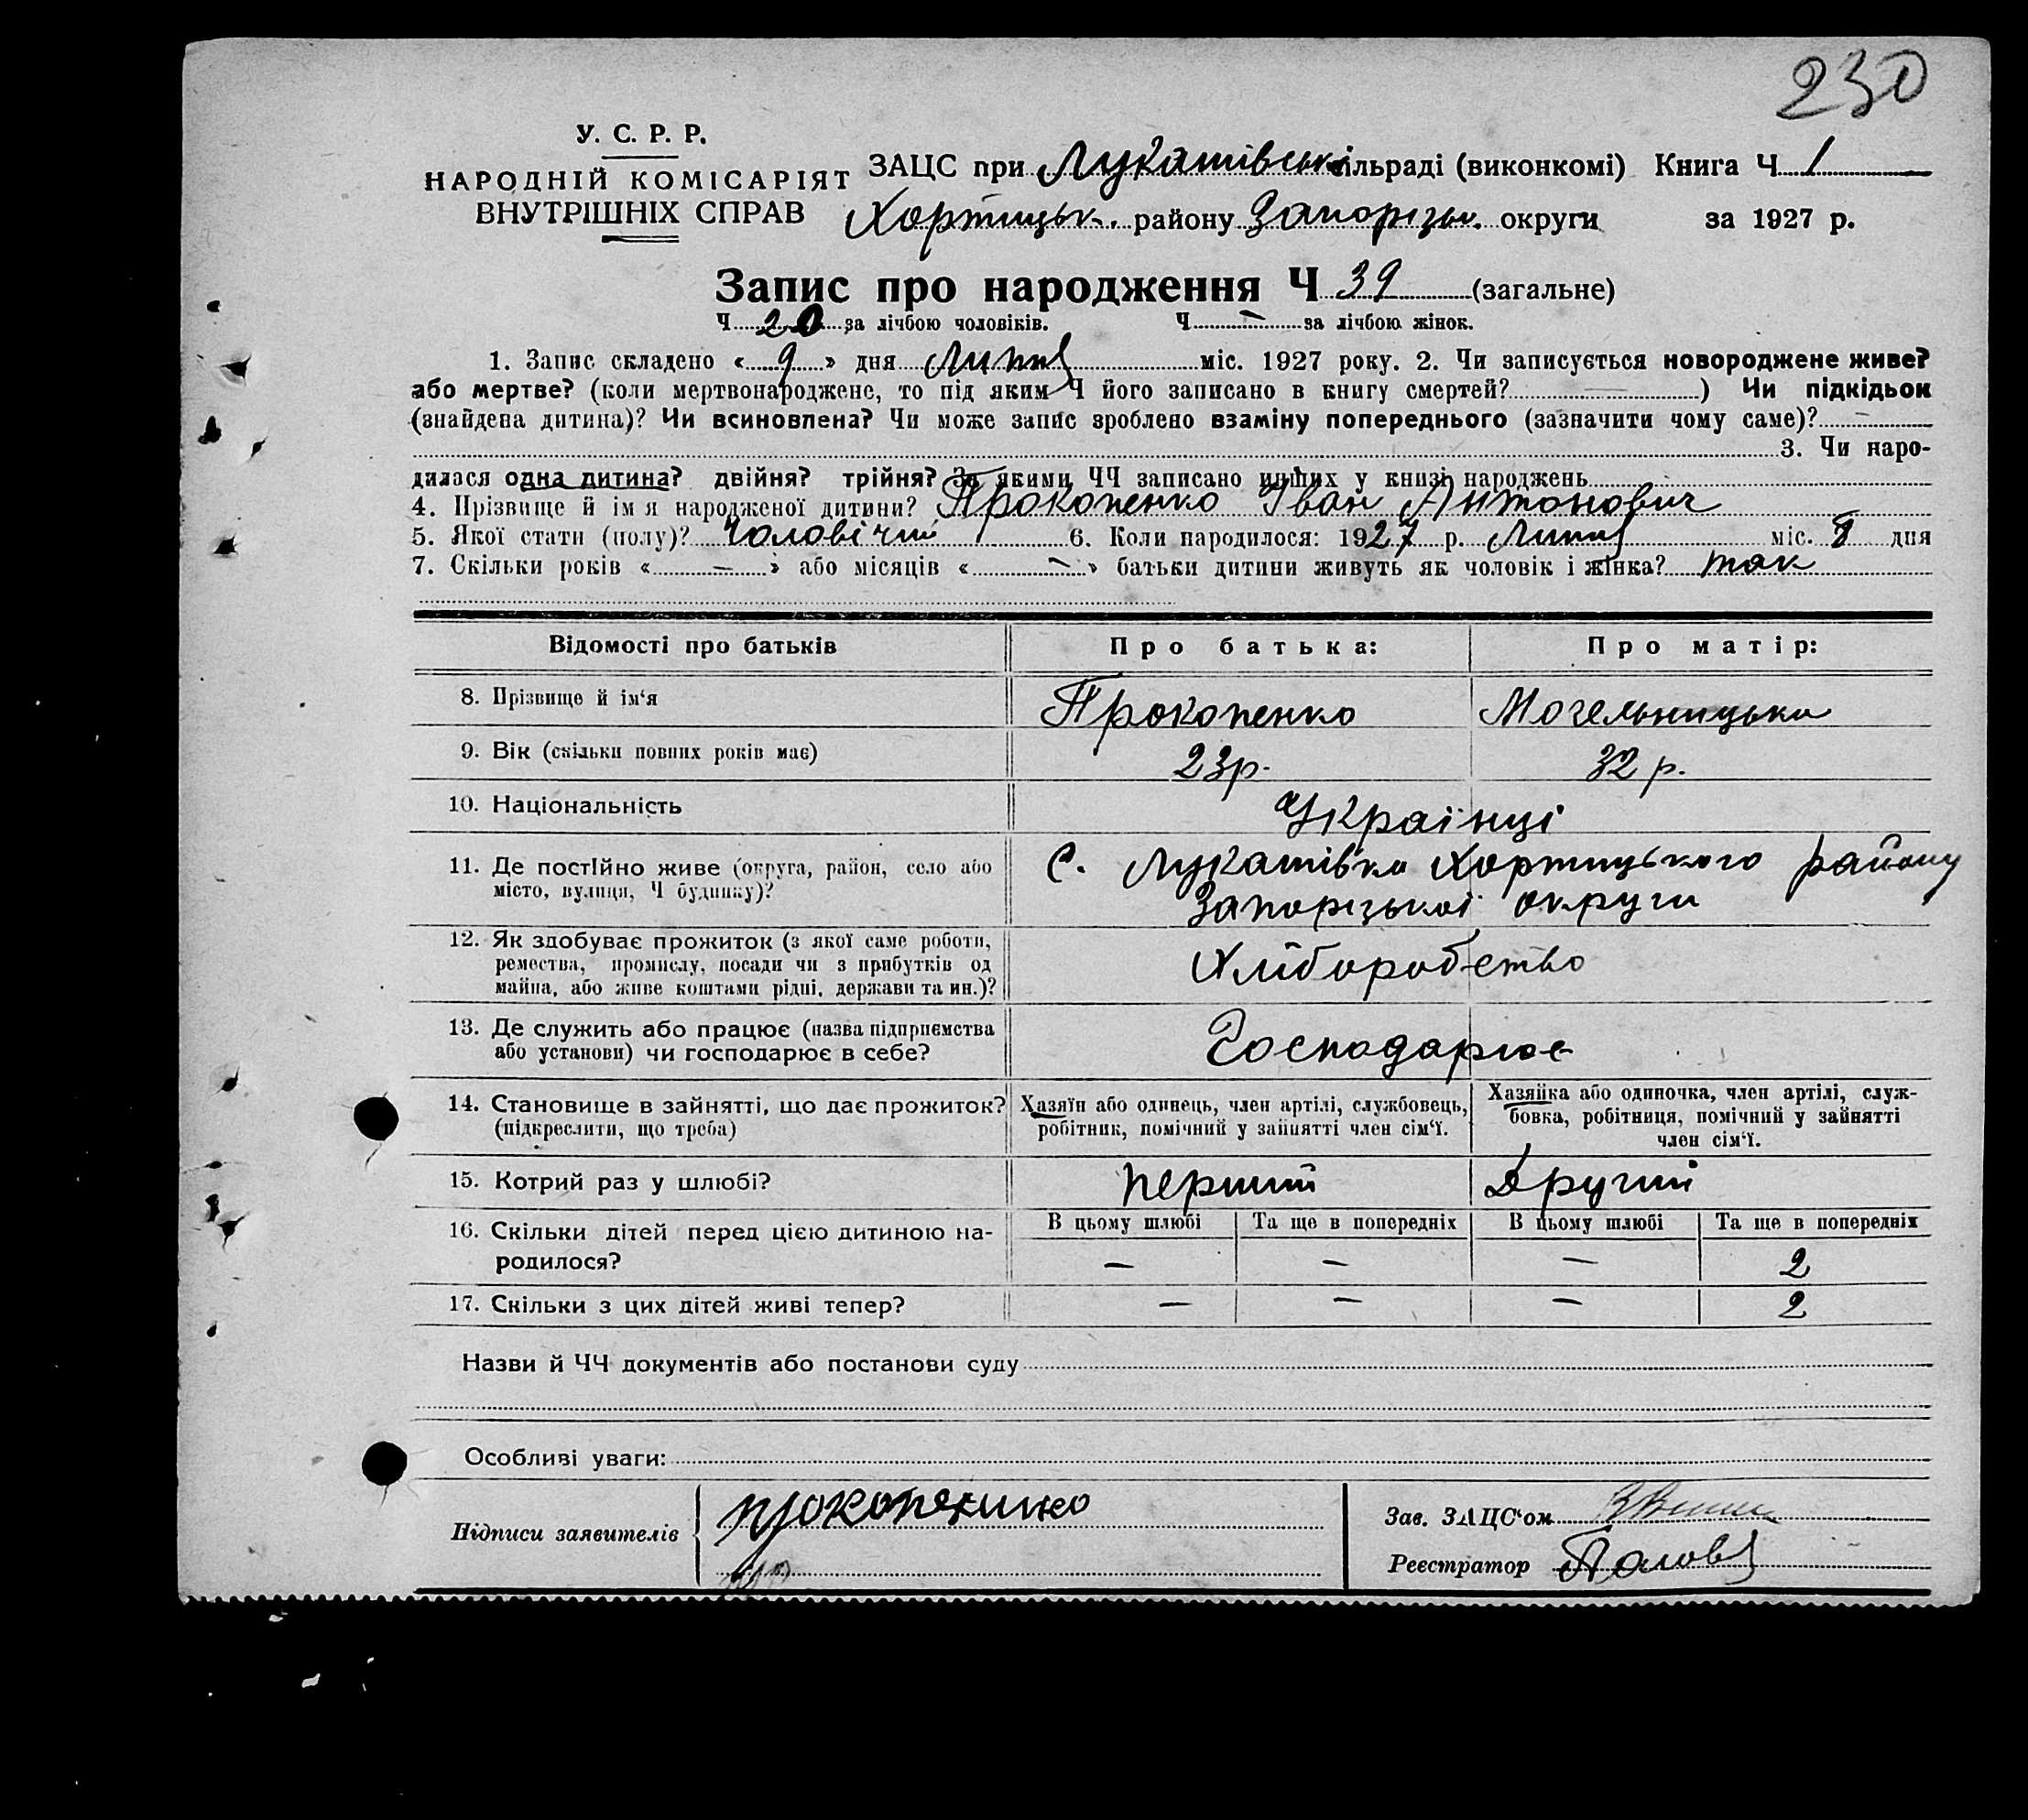 230
У. С. Р. Р.
НАРОДНІЙ КОМІСАРІЯТ
ВНУТРІШНІХ СПРАВ
ЗАЦС при Лукашівській сільраді (виконкомі) Книга Ч 1
Хортицьк. району Запорізьк. округи за 1927 р.
Запис про народження Ч 39 (загальне)
Ч 20 за лічбою чоловіків. Ч — за лічбою жінок.
1. Запис складено «9» дня Липня міс. 1927 року. 2. Чи записується новороджене живе?
або мертве? (коли мертвонароджене, то під яким Ч його записано в книгу смертей? — ) Чи підкідьок
(знайдена дитина)? Чи всиновлена? Чи може запис зроблено взаміну попереднього (зазначити чому саме)? —
3. Чи наро-
дилася одна дитина? двійня? трійня? За якими ЧЧ записано инших у книзі народжень
4. Прізвище й ім я народженої дитини? Прокопенко Іван Антонович
5. Якої стати (полу)? Чоловічий 6. Коли народилося: 1927 р. Липня міс. 8 дня
7. Скільки років « — » або місяців « — » батьки дитини живуть як чоловік і жінка? так
Відомості про батьків Про батька: Про матір:
8. Прізвище й ім‘я Прокопенко Могельницька
9. Вік (скільки повних років має) 23р. 32 р.
10. Національність Українці
11. Де постійно живе (округа, район, село або
місто, вулиця, Ч будинку)?
С. Лукашівка Хортицького району
Запорізької округи
12. Як здобуває прожиток (з якої саме роботи,
ремества, промислу, посади чи з прибутків од
майна, або живе коштами рідні, держави та ин.)?
Хліборобство
13. Де служить або працює (назва підприємства
або установи) чи господарює в себе?
Господарює
14. Становище в зайнятті, що дає прожиток?
(підкреслити, що треба)
Хазяїн або одинець, член артілі, службовець,
робітник, помічний у зайнятті член сім‘ї.
Хазяйка або одиночка, член артілі, служ-
бовка, робітниця, помічний у зайнятті
член сім‘ї.
15. Котрий раз у шлюбі? перший Другий
16. Скільки дітей перед цією дитиною на-
родилося?
В цьому шлюбі Та ще в попередніх В цьому шлюбі Та ще в попередніх
— — — 2
17. Скільки з цих дітей живі тепер? — — — 2
Назви й ЧЧ документів або постанови суду
Особливі уваги:
Підписи заявителів
Зав. ЗАЦС‘ом
Реєстратор